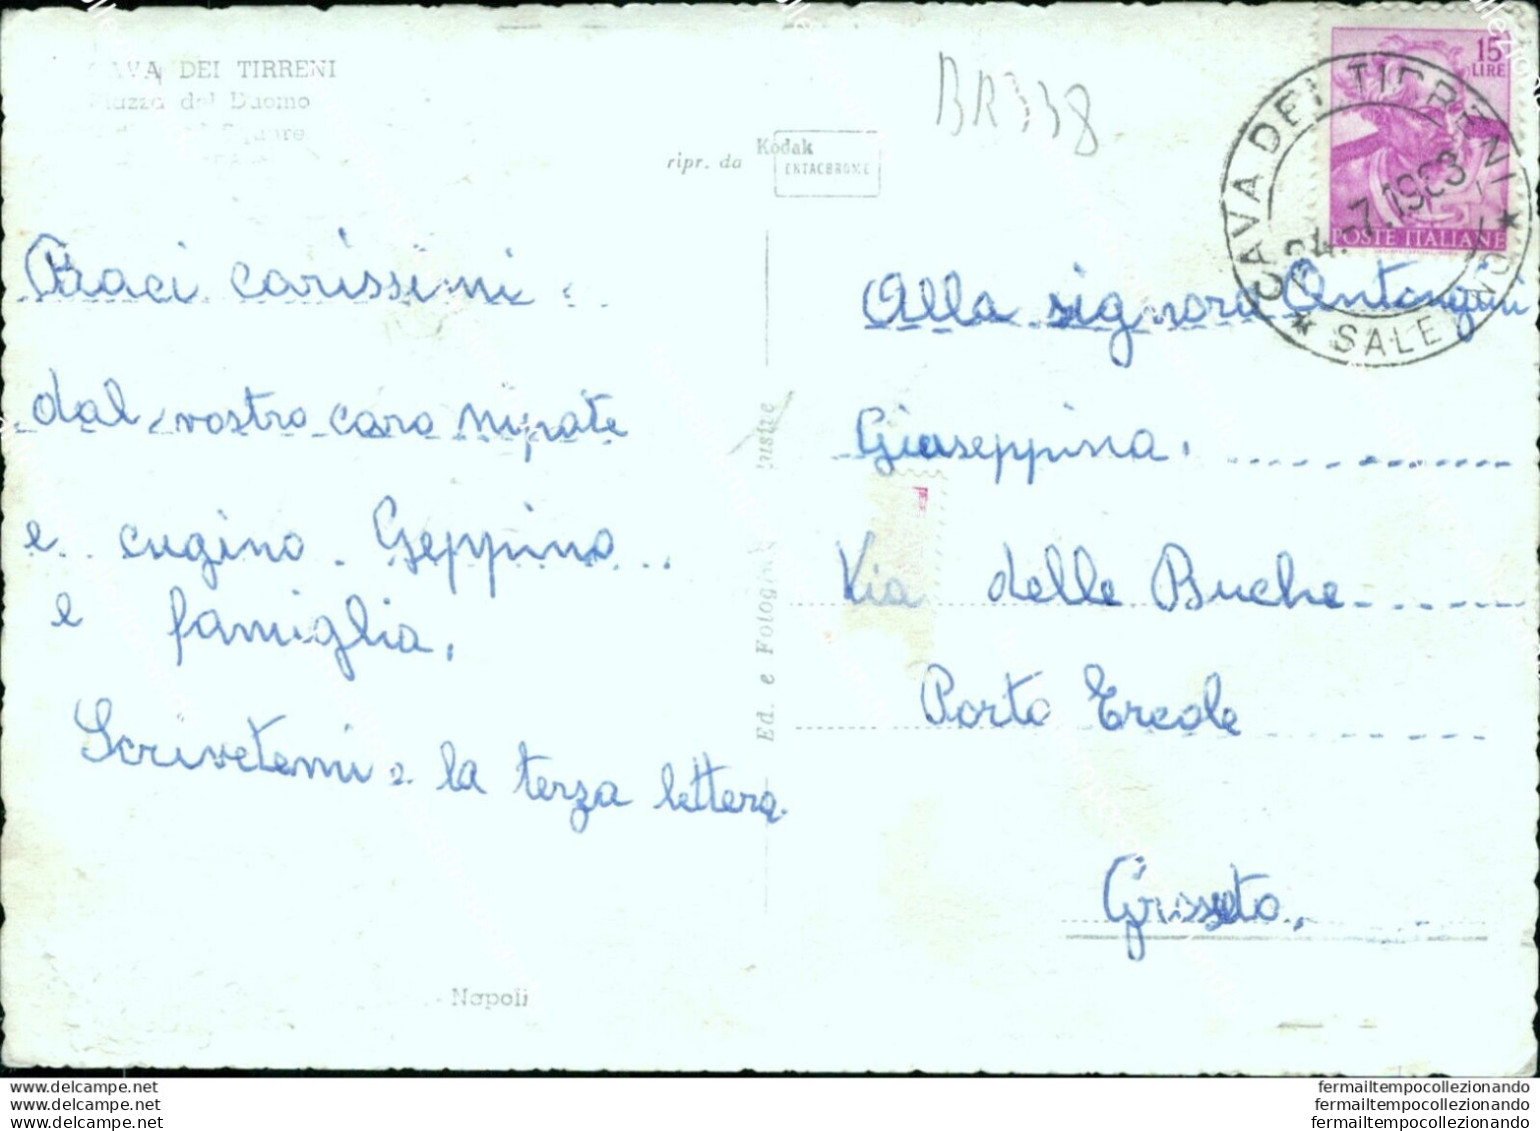 CAVA DEI TIRRENI
Piazza del Duomo
BR338
ripr. da Kodak
EKTACHROME
15
LIRE
POSTE ITALIANE
CAVA DEI TIRRENI
24.-7.1963
★ SALERNO ★
Baci carissimi
dal vostro caro nipote
e cugino Geppino
e famiglia.
Scrivetemi la terza lettera.
Alla signora
Giuseppina.
Via delle Buche
Porto Ercole
Grosseto.
Ed. e Fotografie
Napoli
www.delcampe.net
www.delcampe.net
www.delcampe.net
fermailtempocollezionando
fermailtempocollezionando
fermailtempocollezionando